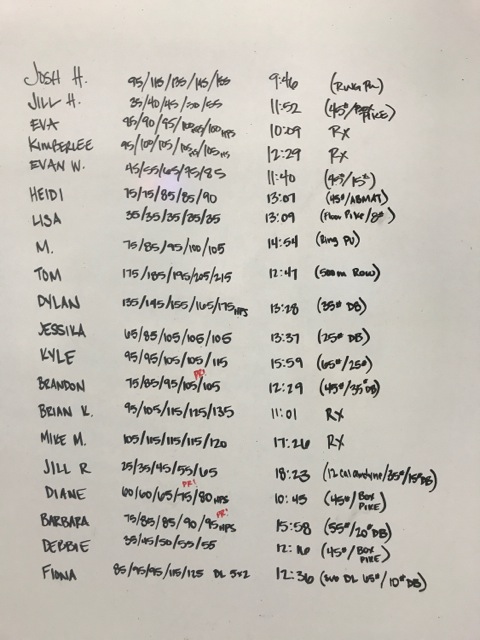 JOSH H. 95/115/135/145/155 9:46 (RING PU)
JILL H. 25/40/45/50/55 11:52 (45#/BOX PIKE)
EVA 10:09 RX
KIMBERLEE 95/100/105/ 12:29 RX
EVAN W. 45/55/65/75/85 11:40 (45#/15#)
HEIDI 75/75/85/85/90 13:07 (45#/ABMAT)
LISA 35/35/35/35/35 13:09 (Floor Pike/8#)
M. 75/85/95/100/105 14:54 (Ring PU)
TOM 175/185/195/205/215 12:47 (500m Row)
DYLAN 135/145/155/165/175 HPS 13:28 (35# DB)
JESSIKA 65/85/105/105/105 13:37 (25# DB)
KYLE 95/95/105/105/115 15:59 (65#/25#)
PR!
BRANDON 75/85/95/105/105 12:29 (45#/35# DB)
BRIAN K. 95/105/115/125/135 11:01 RX
MIKE M. 105/115/115/115/120 17:26 RX
JILL R 25/35/45/55/65 18:23 (12 Cal /35#/15# DB)
PR!
DIANE 60/60/65/75/80 HPS 10:45 (45#/BOX PIKE)
PR!
BARBARA 75/85/85/90/95 HPS 15:58 (55#/20# DB)
DEBBIE 35/45/50/55/55 12:16 (45#/BOX PIKE)
FIONA 85/95/95/115/125 DL 5x2 12:36 (DL 65#/10# DB)